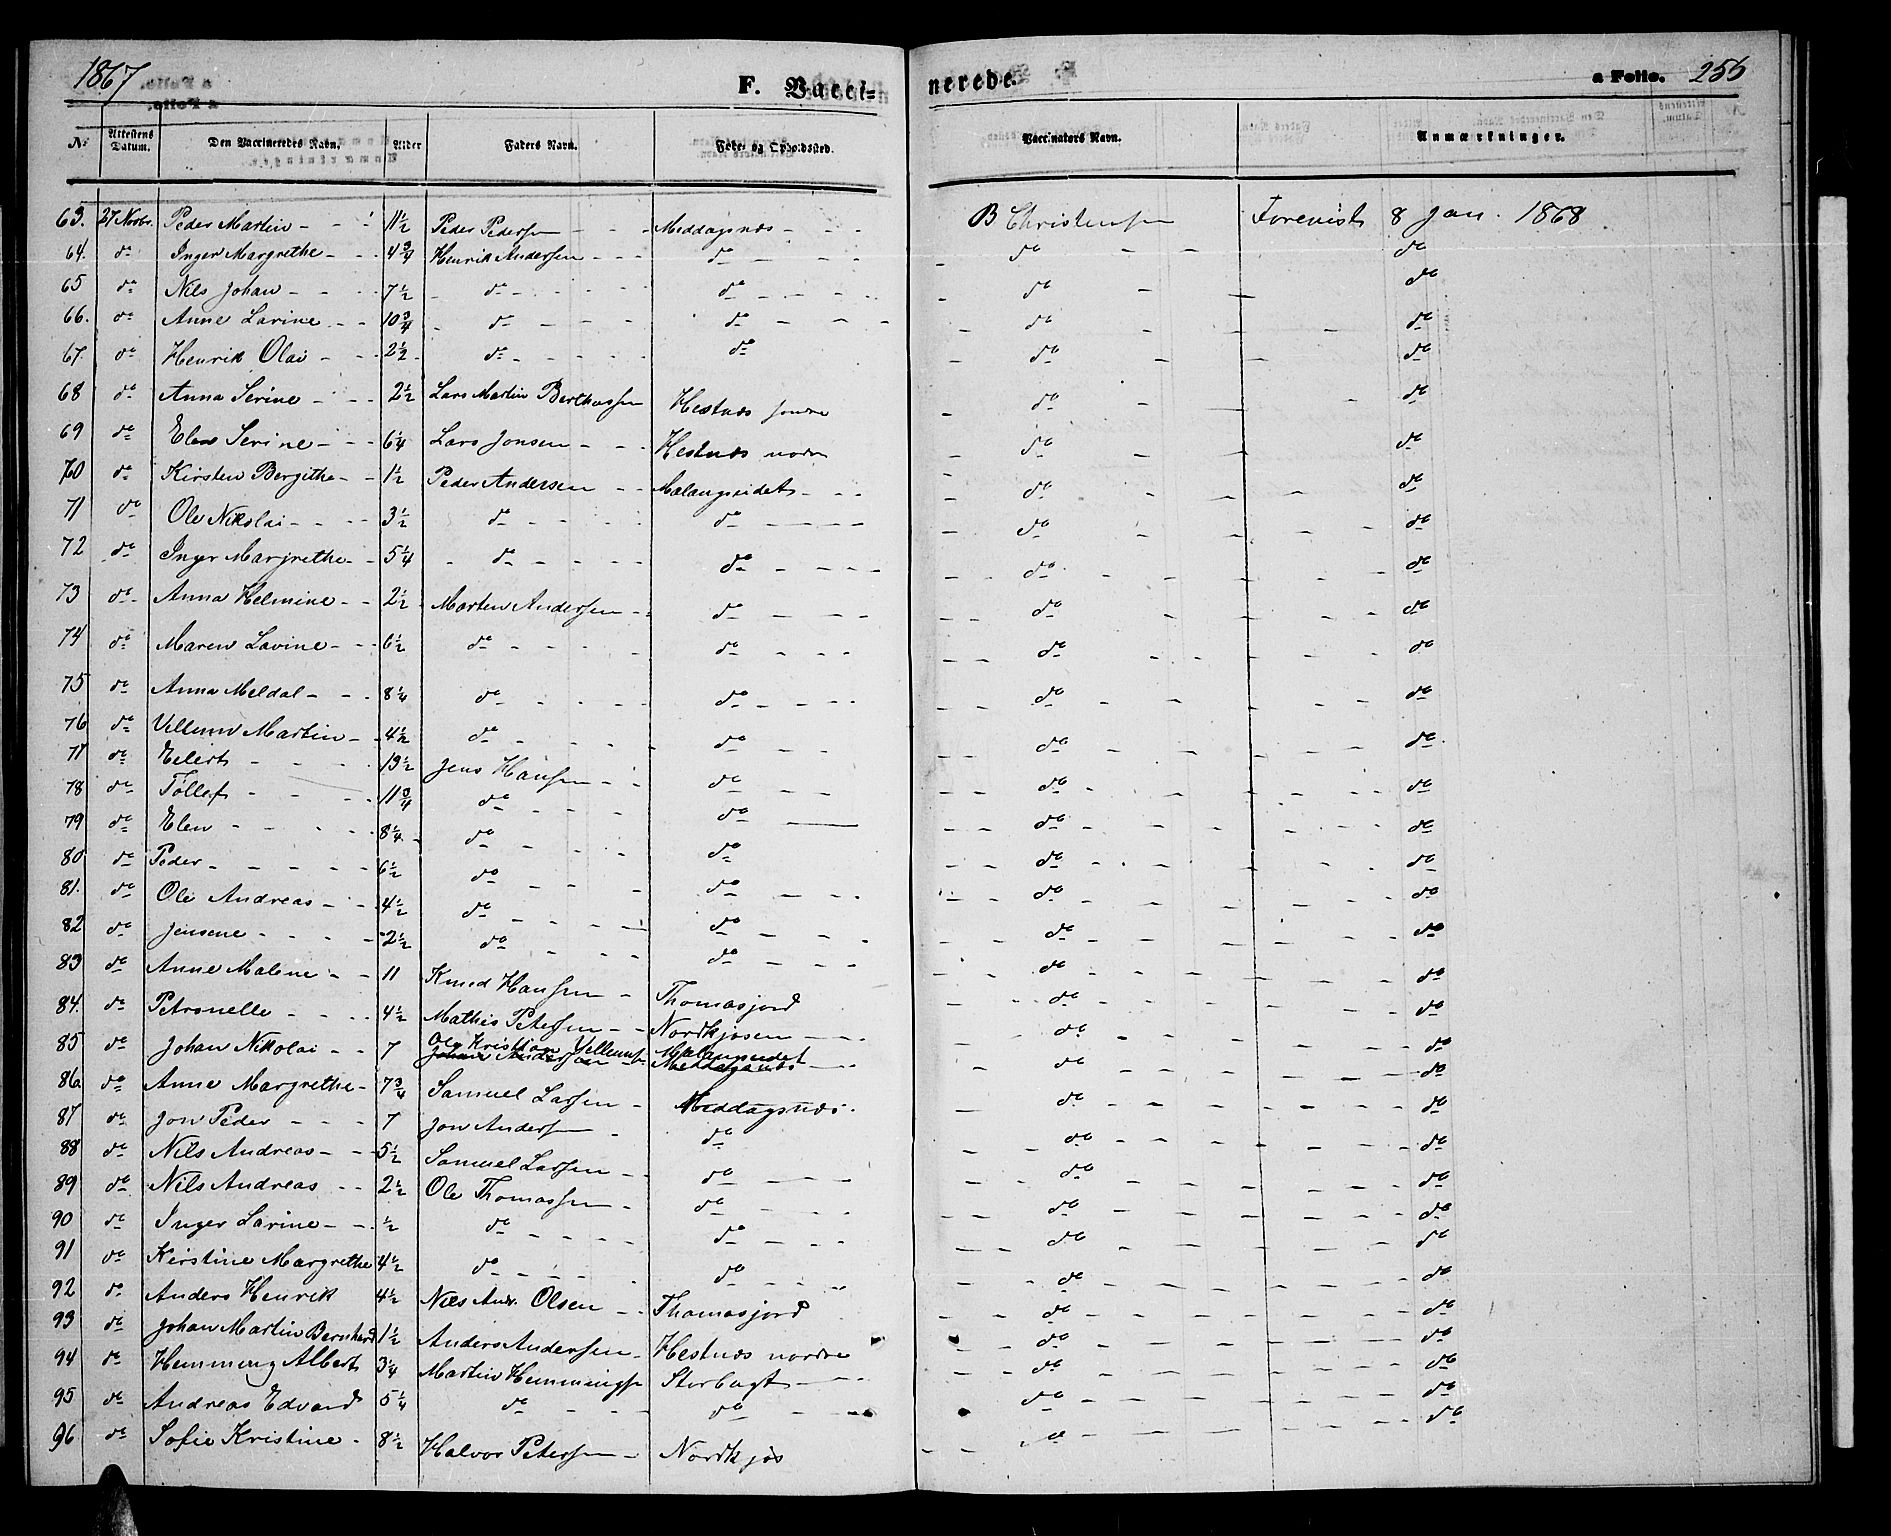 1867 F. Vacci- nerede. a Folio. 255
No Attestens Datum. Den Vaccineredes Navn. Alder Faders Navn. Føde- og Opholdssted. Vaccinators Navn. Anmærkninger.
63. 27 Novbr. Peder Martin - - 11½ Peder Pedersen - - Meddagsnæs - - - B Christensen Forevist 8 Jan. 1868
64. do Inger Margrethe - - 4¾ Henrik Andersen - - - do - - - do - - do
65 do Nils Johan - - - 7½ - do - - - do - - - do - - do
66. do Anne Lavine - - 10¾ - do - - - do - - - do - - do
67. do Henrik Olai - - 2½ - do - - - do do - - do
68 do Anna Serine - - - 2½ Lars Martin Berthussen Hestnæs søndre do - - do
69 do Elen Serine - - - 6¼ Lars Jonsen - - - Hestnæs nordre do - - do
70 do Kirsten Bergithe - - 1½ Peder Andersen - - Malangseidet - - - do - - do
71 do Ole Nikolai - - - 3½ do - - - do - - - do - - do
72 do Inger Margrethe - - 5¼ - do - - - do - - - do - - do
73 do - Anna Helmine - - 2½ Morten Andersen - - do - - - do - - do
74 do Maren Lavine - - - 6½ do - - - do - - - do - - do
75 do Anna Meldal - - - 8¼ do - - - do - - - do - - do
76 do Villum Martin - - 4½ do - - - do - - do - - do
77 do Eilert - - - 13½ Jens Hansen - - do - - do - - do
78 do Tollef - - - 11¾ do - - do - do - - do
79 do Elen - - - 8¼ - do - - do do - - do
80 do Peder - - - - 6½ do - - do - - do - - do
81. do Ole Andreas - - - 4½ do - - - do - - - do - - do
82 do Jensene - - - 2½ do - - - do - - - do - - do
83 do Anne Malene - - 11 Knud Hansen - Thomasjord do - - do
84. do Petronelle - - - 4½ Mathis Petersen - - Nordkjosen - - - do - - do
85 do Johan Nikolai - - 7 Ole Kristian Villums. Malangseidet - - do - - do
86. do Anne Margrethe - 7¾ Samuel Larsen - Meddagsnæs. do - - do
87 do Jon Peder - - - 7 Jon Andersen - do do - - do
88 do Nils Andreas - - 5½ Samuel Larsen - - do - - do - - do
89 do Nils Andreas - - 2½ Ole Thomassen - do - - - do - - do
90 do Inger Lavine - - ½ do - - - do - - - do - - do
91 do Kirstine Margrethe 4½ do - - - do - - - do - - do
92 do Anders Henrik 4½ Nils Andr. Olsen - - Thomasjord do - - do
93 do Johan Martin Bernhard 1½ Anders Andersen - Hestnæs nordre do - - do
94 do Hemming Albert 3¼ Martin Hemmingsen Storbugt - - - do - - do
95 do Andreas Edvard 5¼ do - - - do - - do - - do
96 do Sofie Kristine - 8½ Halvor Petersen - Nordkjos - do - - do